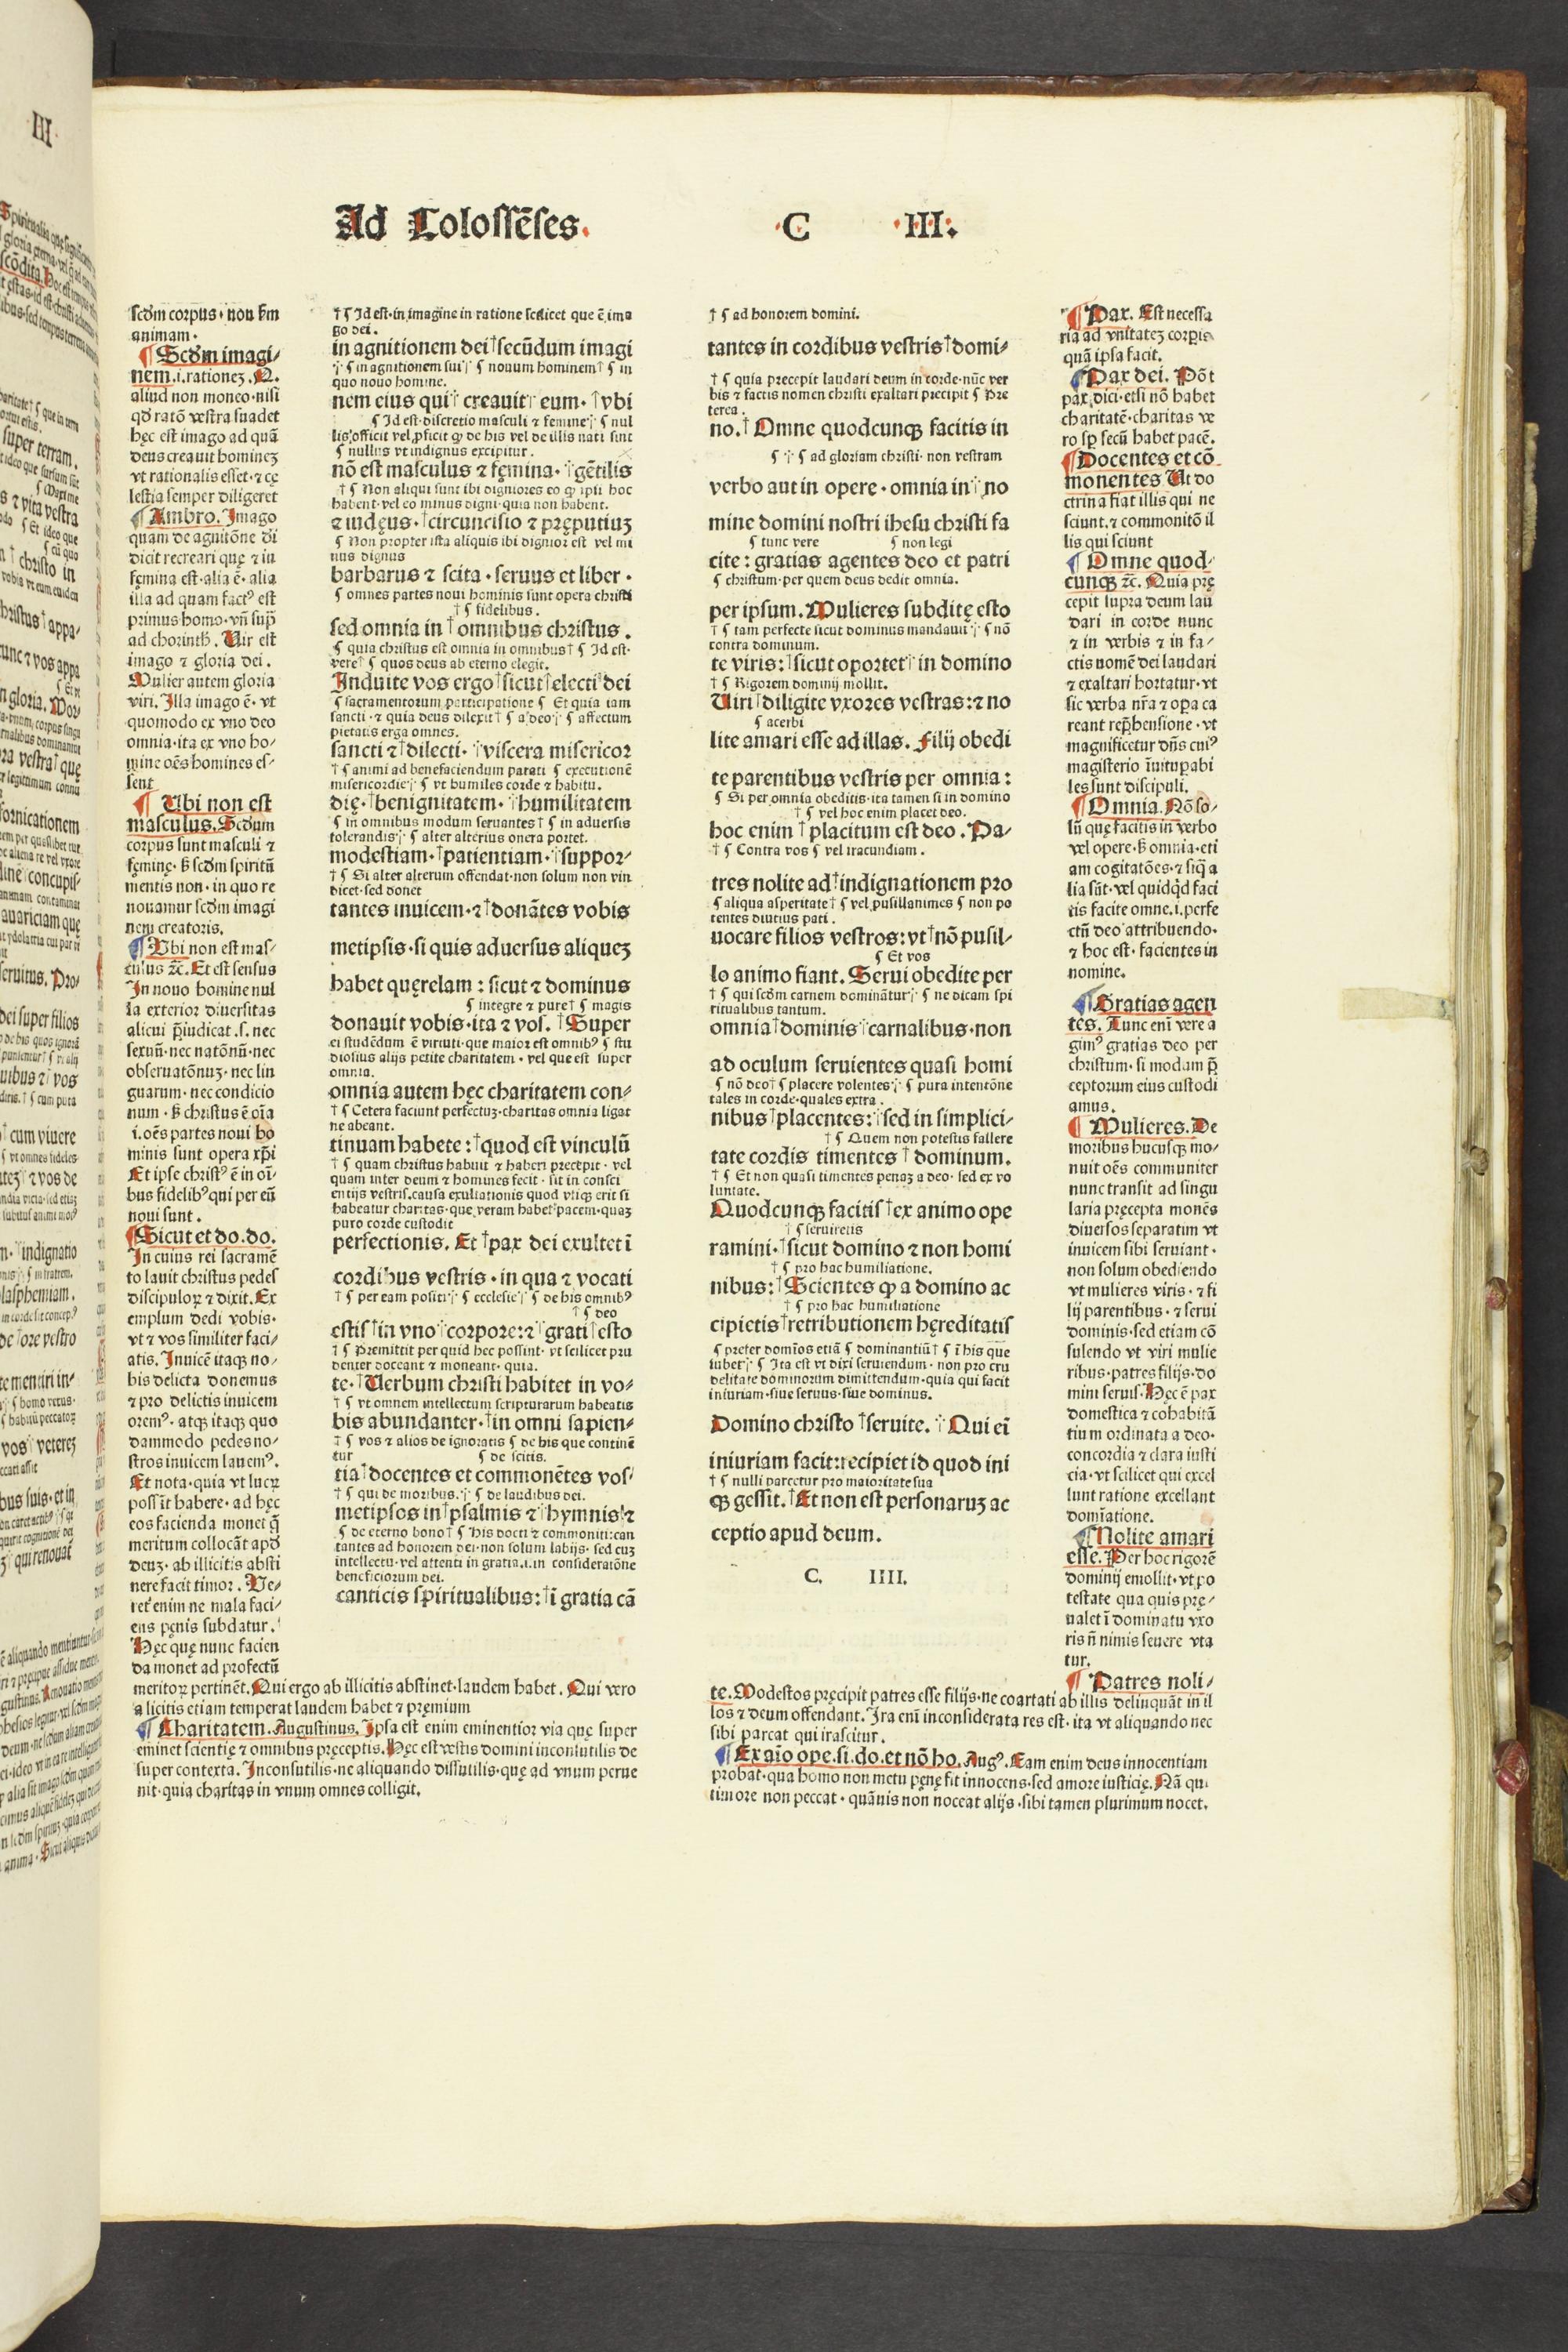 Ad Colossẽses.
C III.
scd̃m corpus · non
animam ·
¶ Scd̃m imagi⸗
nem .i. rationeʒ . N.
aliud non moneo · nisi
qđ ratõ vestra suadet
hęc est imago ad quã
deus creauit homineʒ
vt rationalis esset · ⁊ cę
lestia semper diligeret
¶ Ambro. Imago
quam de agnitõne di
dicit recreari quę ⁊ in
fęmina est · alia ẽ · alia
illa ad quam factꝰ est
primus homo · vñ sup̃
ad chorinth̃. Uir est
imago ⁊ gloria dei .
Mulier autem gloria
viri. Illa imago ẽ · vt
quomodo ex vno deo
omnia · ita ex vno ho⸗
mine oẽs homines es⸗
sent
¶ Ubi non est
masculus. Scd̃um
corpus sunt masculi ⁊
fęminę · scd̃m spiritũ
mentis non · in quo re
nouamur scd̃m imagi
nem creatoris.
¶ Ubi non est mas⸗
culus ⁊c̃. Et est sensus
In nouo homine nul
la exterior diuersitas
alicui p̃iudicat .s. nec
sexuũ · nec natõnũ · nec
obseruatõnuʒ · nec lin
guarum · nec condicio
num · christus ẽ oĩa
i. oẽs partes noui ho
minis sunt opera xp̃i
Et ipse christꝰ ẽ in oĩ⸗
bus fidelibꝰ qui per eũ
noui sunt .
¶ Sicut et do. do.
In cuius rei sacramẽ
to lauit christus pedes
discipuloꝝ ⁊ dixit. Ex
emplum dedi vobis ·
vt ⁊ vos similiter faci⸗
atis. Inuicẽ itaqꝫ no⸗
bis delicta donemus
⁊ pro delictis inuicem
oremꝰ · atqꝫ itaqꝫ quo
dammodo pedes no⸗
stros inuicem lauemꝰ.
Et nota · quia vt luceꝝ
possĩt habere · ad hęc
eos facienda monet q̃
meritum collocãt apđ
deuʒ · ab illicitis absti
nere facit timor . Ue⸗
retᷣ enim ne mala faci⸗
ens pęnis subdatur .
Hęc quę nunc facien
da monet ad profectũ
meritoꝝ pertinẽt. Qui ergo ab illicitis abstinet · laudem habet . Qui vero
a licitis etiam temperat laudem habet ⁊ pręmium
¶ Charitatem. Augustinus. Ipsa est enim eminentior via quę super
eminet scientię ⁊ omnibus pręceptis. Hęc est vestis domini inconsutilis de
super contexta. Inconsutilis · ne aliquando dissutilis · quę ad vnum perue
nit · quia charitas in vnum omnes colligit.
† ¶ Id est · in imagine in ratione scilicet que ẽ ima
go dei .
in agnitionem dei † secũdum imagi
¶ in agnitionem sui ¶ nouum hominem † ¶ in
quo nouo homine.
nem eius qui † creauit eum · † vbi
¶ Id est · discretio masculi ⁊ femine ¶ nul
lis officit vel ꝓficit ꝙ de his vel de illis nati sint
¶ nullus vt indignus excipitur .
nõ est masculus ⁊ fęmina · † gẽtilis
† ¶ Non aliqui sunt ibi digniores eo ꝙ ipsi hoc
habent · vel eo minus digni · quia non habent.
⁊ iudęus · † circuncisio ⁊ pręputiuʒ
¶ Non propter ista aliquis ibi dignior est vel mi
nus dignus
barbarus ⁊ scita · seruus et liber ·
¶ omnes partes noui hominis sunt opera christi
† ¶ fidelibus .
sed omnia in † omnibus christus .
¶ quia christus est omnia in omnibus † ¶ Id est ·
vere † ¶ quos deus ab eterno elegit.
Induite vos ergo † sicut † electi dei
¶ sacramentorum participatione ¶ Et quia iam
sancti · ⁊ quia deus dilexit † ¶ a deo ¶ affectum
pietatis erga omnes.
sancti ⁊ † dilecti · † viscera misericor
† ¶ animi ad benefaciendum parati ¶ executionẽ
misericordie ¶ vt humiles corde ⁊ habitu.
dię · † benignitatem · † humilitatem
¶ in omnibus modum seruantes † ¶ in aduersis
tolerandis ¶ alter alterius onera portet.
modestiam · † patientiam · † suppor⸗
† ¶ Si alter alterum offendat · non solum non vin
dicet · sed donet
tantes inuicem · ⁊ † donãtes vobis
metipsis · si quis aduersus aliqueʒ
habet quęrelam : sicut ⁊ dominus
¶ integre ⁊ pure † ¶ magis
donauit vobis · ita ⁊ vos. † Super
ei studẽdum ẽ virtuti · que maior est omnibꝰ ¶ stu
diosius alijs petite charitatem · vel que est super
omnia.
omnia autem hęc charitatem con⸗
† ¶ Cetera faciunt perfectuʒ · charitas omnia ligat
ne abeant.
tinuam habete : † quod est vinculũ
† ¶ quam christus habuit ⁊ haberi precepit · vel
quam inter deum ⁊ homines fecit · sit in consci
entijs vestris. causa exultationis quod vtiqꝫ erit si
habeatur charitas · que veram habet pacem · quaʒ
puro corde custodit
perfectionis. Et † pax dei exultet ĩ
cordibus vestris · in qua ⁊ vocati
† ¶ per eam positi ¶ ecclesie ¶ de his omnibꝰ
† ¶ deo
estis † in vno † corpore : ⁊ † grati † esto
† ¶ Premittit per quid hec possint · vt scilicet pru
denter doceant ⁊ moneant · quia.
te · † Uerbum christi habitet in vo⸗
† ¶ vt omnem intellectum scripturarum habeatis
bis abundanter · † in omni sapien⸗
† ¶ vos ⁊ alios de ignoratis ¶ de his que continẽ
tur ¶ de scitis.
tia † docentes et commonẽtes vos⸗
† ¶ qui de moribus. ¶ de laudibus dei.
metipsos in † psalmis ⁊ † hymnis † ⁊
¶ de eterno bono † ¶ His docti ⁊ commoniti : can
tantes ad honorem dei · non solum labijs · sed cuʒ
intellectu · vel attenti in gratia .i. in consideratõne
beneficiorum dei.
canticis spiritualibus : † ĩ gratia cã
† ¶ ad honorem domini.
tantes in cordibus vestris † domi⸗
† ¶ quia precepit laudari deum in corde · nũc ver
bis ⁊ factis nomen christi exaltari precipit ¶ Pre
terea .
no. † Omne quodcunqꝫ facitis in
¶ ¶ ad gloriam christi · non vestram
verbo aut in opere · omnia in † no
mine domini nostri ihesu christi fa
¶ tunc vere ¶ non legi
cite : gratias agentes deo et patri
¶ christum · per quem deus dedit omnia.
per ipsum. Mulieres subditę esto
† ¶ tam perfecte sicut dominus mandauit ¶ nõ
contra dominum.
te viris : † sicut oportet † in domino
† ¶ Rigorem dominij mollit.
Uiri † diligite vxores vestras : ⁊ no
¶ acerbi
lite amari esse ad illas. Filij obedi
te parentibus vestris per omnia :
¶ Si per omnia obeditis · ita tamen si in domino
† ¶ vel hoc enim placet deo.
hoc enim † placitum est deo . Pa⸗
† ¶ Contra vos ¶ vel iracundiam .
tres nolite ad † indignationem pro
¶ aliqua asperitate † ¶ vel pusillanimes ¶ non po
tentes diutius pati .
uocare filios vestros : vt † nõ pusil⸗
¶ Et vos
lo animo fiant. Serui obedite per
† ¶ qui scd̃m carnem dominãtur ¶ ne dicam spi
ritualibus tantum.
omnia † dominis † carnalibus · non
ad oculum seruientes quasi homi
¶ nõ deo † ¶ placere volentes ¶ pura intentõne
tales in corde · quales extra .
nibus † placentes : † sed in simplici⸗
† ¶ Quem non potestis fallere
tate cordis timentes † dominum.
† ¶ Et non quasi timentes penaʒ a deo · sed ex vo
luntate.
Quodcunqꝫ facitis † ex animo ope
† ¶ seruiretis
ramini · † sicut domino ⁊ non homi
† ¶ pro hac humiliatione.
nibus : † Scientes ꝙ a domino ac
† ¶ pro hac humiliatione
cipietis † retributionem hęreditatis
¶ preter domĩos etiã ¶ dominantiũ † ¶ ĩ his que
iubet ¶ Ita est vt dixi seruiendum · non pro cru
delitate dominorum dimittendum · quia qui facit
iniuriam · siue seruus · siue dominus.
Domino christo † seruite. † Qui eĩ
iniuriam facit : recipiet id quod ini
† ¶ nulli parcetur pro maioritate sua
qꝫ gessit. † Et non est personaruʒ ac
ceptio apud deum.
C. IIII.
¶ Pax. Est necessa
ria ad vnitateʒ corꝑis
quã ipsa facit.
¶ Pax dei. Põt
pax dici · etsi nõ habet
charitatẽ · charitas ve
ro sꝑ secũ habet pacẽ.
¶ Docentes et cõ
monentes Ut do
ctrina fiat illis qui ne
sciunt. ⁊ commonitõ il
lis qui sciunt
¶ Omne quod⸗
cunqꝫ ⁊c̃. Quia prę
cepit supra deum lau
dari in corde nunc
⁊ in verbis ⁊ in fa⸗
ctis nomẽ dei laudari
⁊ exaltari hortatur · vt
sic verba nr̃a ⁊ oꝑa ca
reant rep̃hensione · vt
magnificetur dñs cuiꝰ
magisterio ĩuituꝑabi
les sunt discipuli.
¶ Omnia. Nõ so⸗
lũ quę facitis in verbo
vel opere · omnia · eti
am cogitatões · ⁊ siq̃ a
lia sũt · vel quidqđ faci
tis facite omne .i. perfe
ctũ deo attribuendo ·
⁊ hoc est · facientes in
nomine.
¶ Gratias agen
tes. Tunc enĩ vere a
gimꝰ gratias deo per
christum · si modum p̃
ceptorum eius custodi
amus.
¶ Mulieres. De
moribus hucusqꝫ mo⸗
nuit oẽs communiter
nunc transit ad singu
laria pręcepta monẽs
diuersos separatim vt
inuicem sibi seruiant ·
non solum obediendo
vt mulieres viris · ⁊ fi
lij parentibus · ⁊ serui
dominis · sed etiam cõ
sulendo vt viri mulie
ribus · patres filijs · do
mini seruis. Hęc ẽ pax
domestica ⁊ cohabitã
tium ordinata a deo ·
concordia ⁊ clara iusti
cia · vt scilicet qui excel
lunt ratione excellant
domĩatione.
¶ Nolite amari
esse. Per hoc rigorẽ
dominij emollit · vt po
testate qua quis prę⸗
ualet ĩ dominatu vxo
ris ñ nimis seuere vta
tur.
¶ Patres noli⸗
te. Modestos pręcipit patres esse filijs · ne coartati ab illis delinquãt in il
los ⁊ deum offendant. Ira enĩ inconsiderata res est · ita vt aliquando nec
sibi parcat qui irascitur.
¶ Ex aĩo ope. si. do. et nõ ho. Augꝰ. Eam enim deus innocentiam
probat · qua homo non metu pęnę fit innocens · sed amore iusticię. Nã qui
timore non peccat · quãuis non noceat alijs · sibi tamen plurimum nocet.